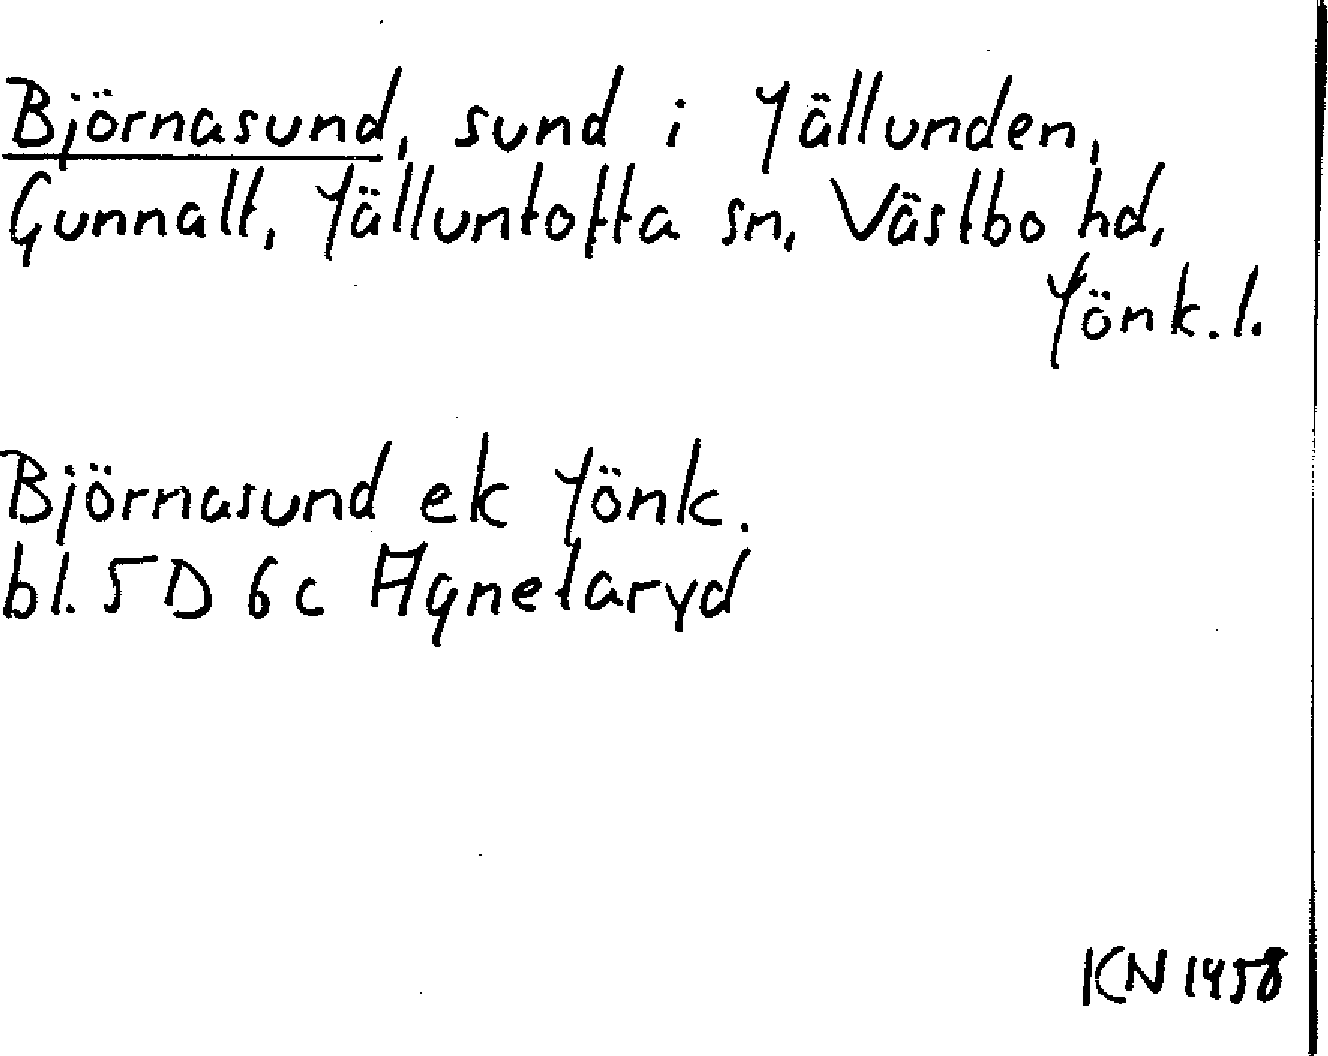 Björnasund, sund i Jällunden,
Gunnalt, Jälluntofta sn, Västbo hd,
Jönk. l.
Björnasund ek Jönk.
bl. 5D 6c Agnetaryd
KN 1458